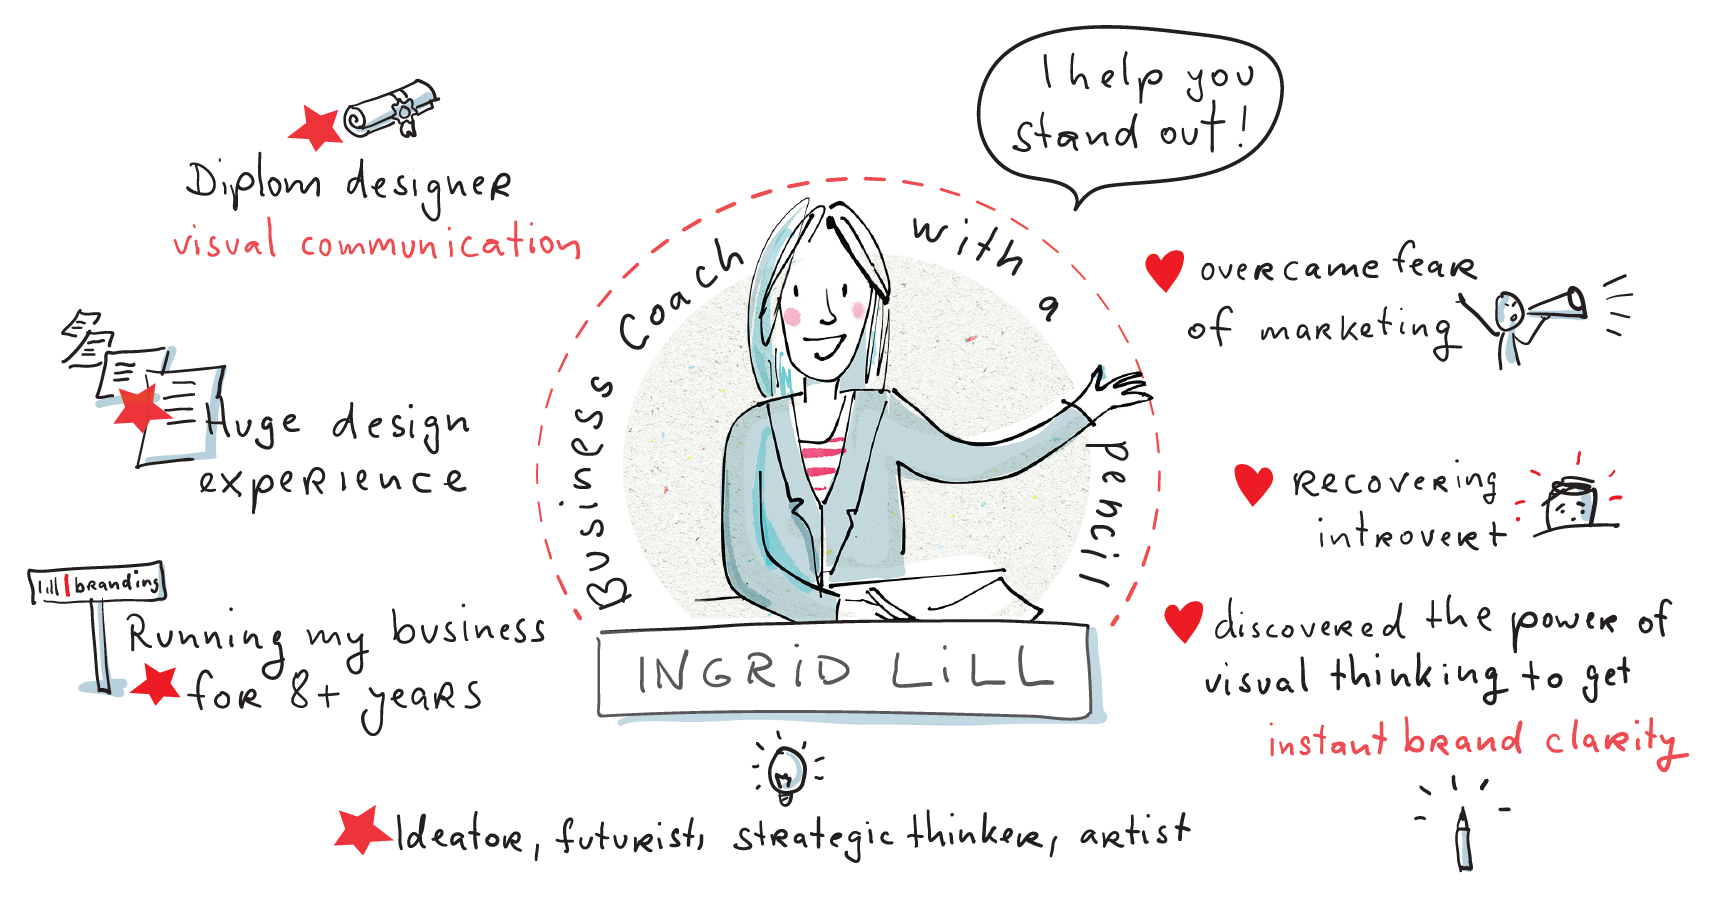 I help you
stand out!
Diplom designer
visual communication
Huge design
experience
lill | branding
Running my business
for 8+ years
Business Coach with a pencil
INGRID LILL
overcame fear
of marketing
recovering
introvert
discovered the power of
visual thinking to get
instant brand clarity
Ideator, futurist, strategic thinker, artist